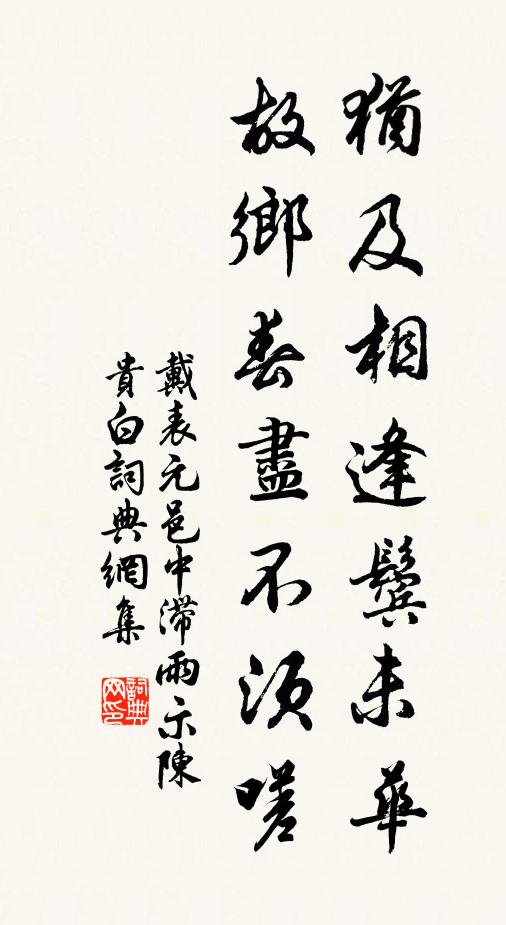 猶及相逢鬢未華
故鄉春盡不須嗟
戴表元邑中滯雨示陳
貴白詞典網集
詞典網印